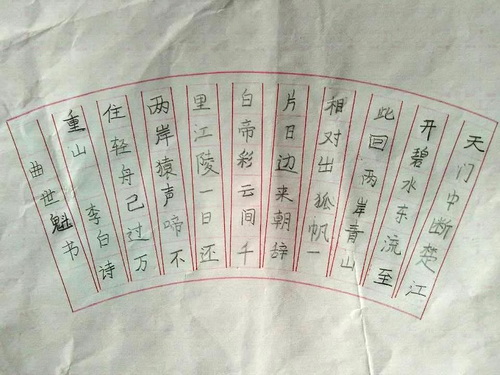 天门中断楚江
开碧水东流至
此回两岸青山
相对出狐帆一
片日边来朝辞
白帝彩云间千
里江陵一日还
两岸猿声啼不
住轻舟己过万
重山 李白诗
曲世魁书